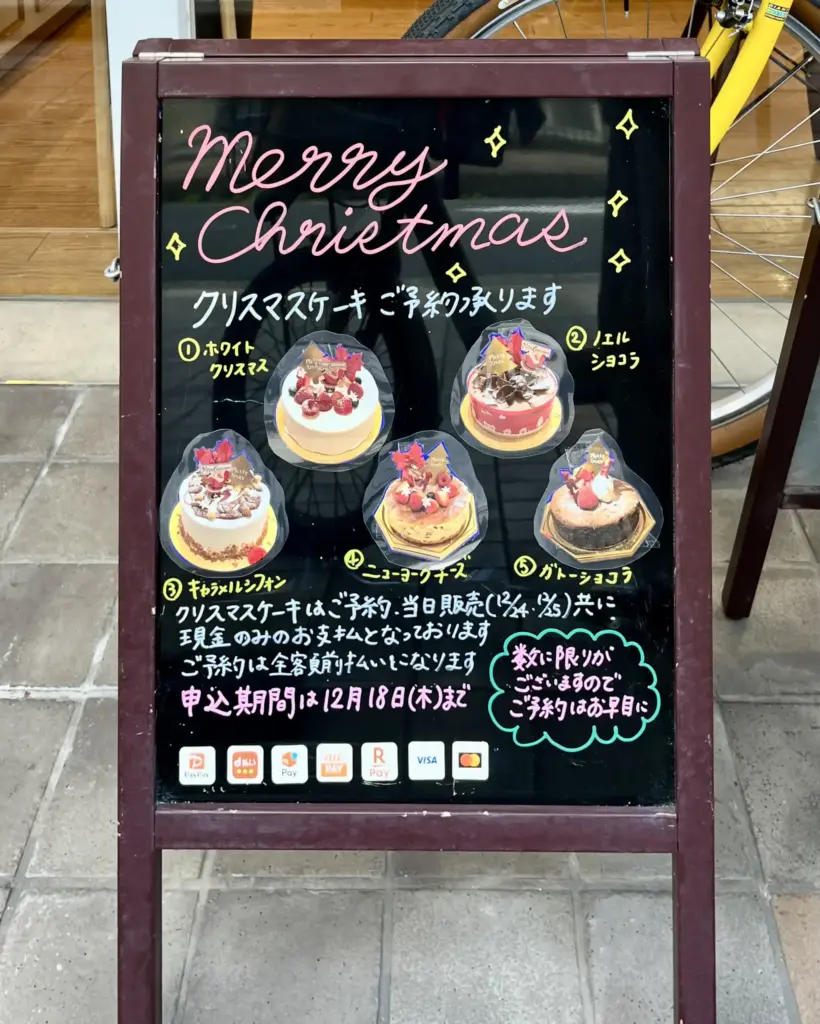 Merry
Christmas
クリスマスケーキ ご予約承ります
① ホワイト
クリスマス
② ノエル
ショコラ
③ キャラメルシフォン
④ ニューヨークチーズ
⑤ ガトーショコラ
クリスマスケーキはご予約、当日販売(12/24・12/25)共に
現金のみのお支払となっております
ご予約は全額前払いとなります
申込期間は12月18日(木)まで
数に限りが
ございますので
ご予約はお早目に
PayPay
d払い
Pay
au PAY
R Pay
VISA